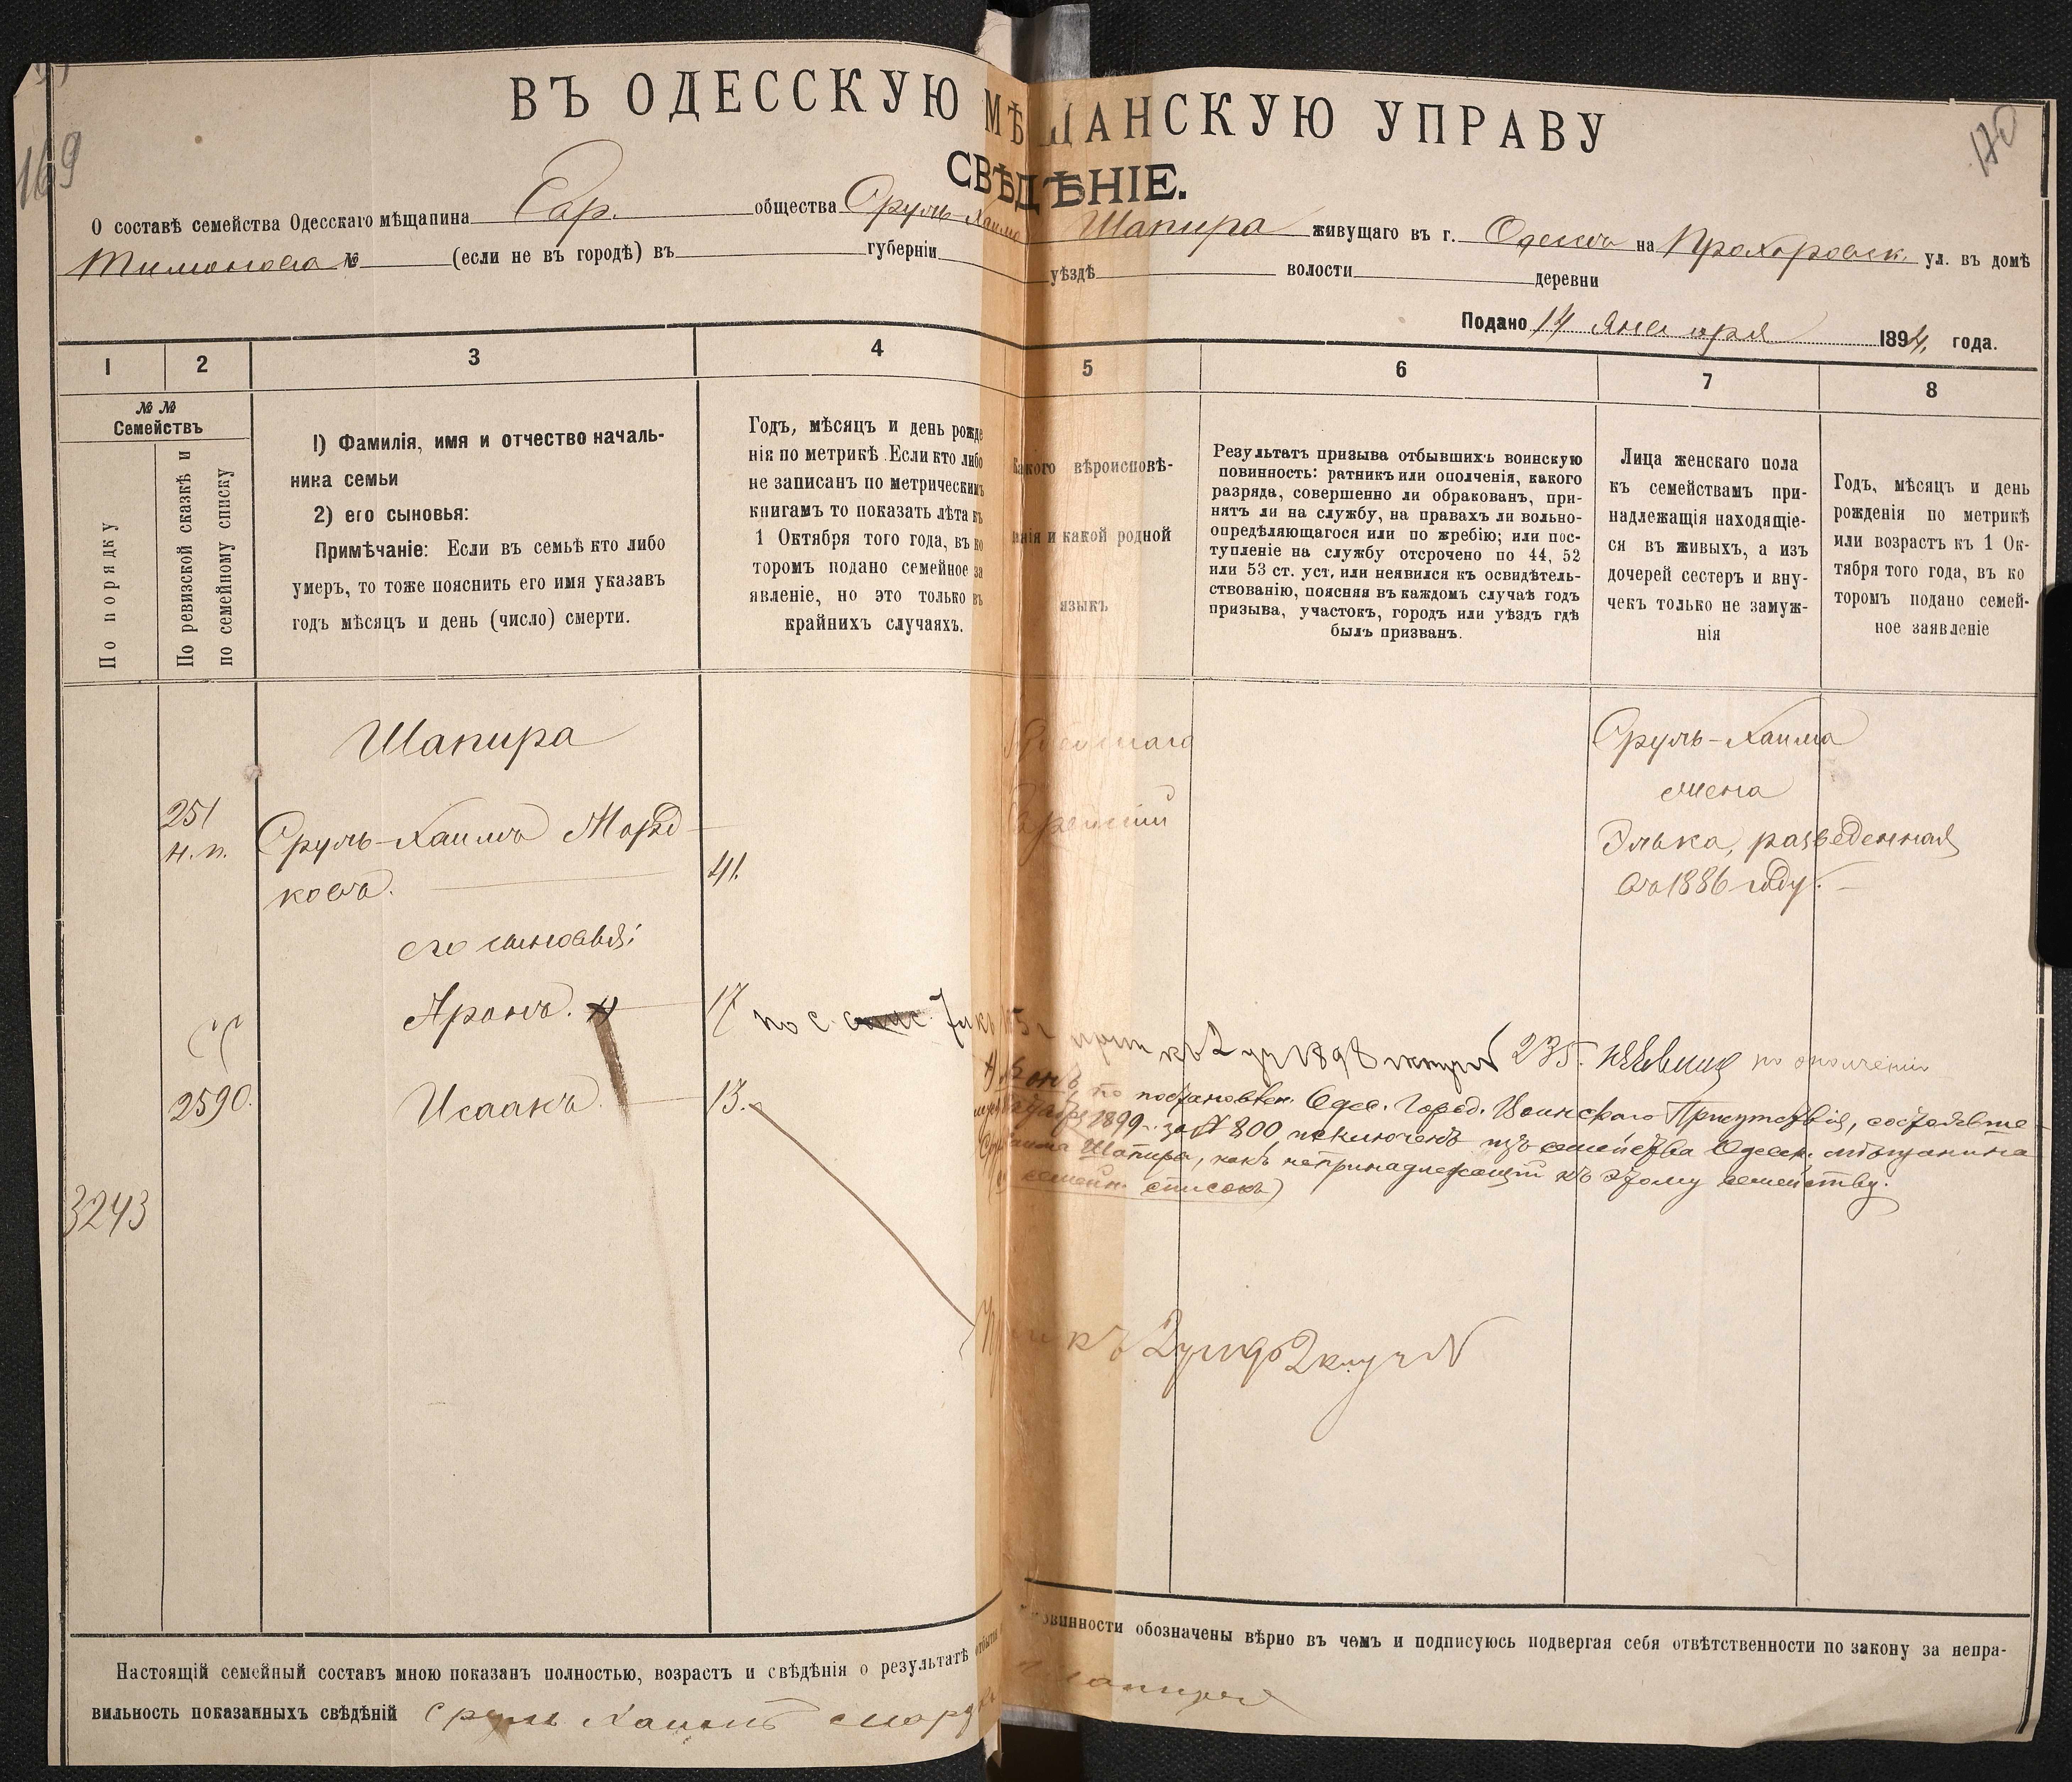 169
170
ВЪ ОДЕССКУЮ МѢЩАНСКУЮ УПРАВУ
СВѢДѢНІЕ.
О составѣ семейства Одесскаго мѣщанина Евр. общества Сруль-Хаима Шапира живущаго въ г. Одессѣ на Прохоровск. ул. въ домѣ
Тимонова № (если не въ городѣ) въ губерніи уѣздѣ волости деревни
Подано 14 Января 1894 года.
1 2 3 4 5 6 7 8
№ №
Семействъ
По порядку
По ревизской сказкѣ и
по семейному списку
1) Фамилія, имя и отчество началь-
ника семьи
2) его сыновья:
Примѣчаніе: Если въ семьѣ кто либо
умеръ, то тоже пояснить его имя указавъ
годъ мѣсяцъ и день (число) смерти.
Годъ, мѣсяцъ и день рожде
нія по метрикѣ. Если кто либо
не записанъ по метрическимъ
книгамъ то показать лѣта къ
1 Октября того года, въ ко
торомъ подано семейное за
явленіе, но это только въ
крайнихъ случаяхъ.
Какого вѣроисповѣ-
данія и какой родной
языкъ
Результатъ призыва отбывшихъ воинскую
повинность: ратникъ или ополченія, какого
разряда, совершенно ли обракованъ, при-
нятъ ли на службу, на правахъ ли вольно-
опредѣляющагося или по жребію; или пос-
тупленіе на службу отсрочено по 44, 52
или 53 ст. уст. или неявился къ освидѣтель-
ствованію, поясняя въ каждомъ случаѣ годъ
призыва, участокъ, городъ или уѣздъ гдѣ
былъ призванъ.
Лица женскаго пола
къ семействамъ при-
надлежащія находящіе-
ся въ живыхъ, а изъ
дочерей сестеръ и вну-
чекъ только не замуж-
нія
Годъ, мѣсяцъ и день
рожденія по метрикѣ
или возрастъ къ 1 Ок-
тября того года, въ ко
торомъ подано семей-
ное заявленіе
Шапира
251
н.п.
Сруль-Хаимъ Морд
ковъ.
41.
Еврейскій
Сруль-Хаима
жена
Элька, разведенная
въ 1886 году.
его сыновья:
Аронъ. 17 по с.
1898 235. по ополченію
2590. Исаакъ. 13.
по постановлен. Одес. Город. Воинскаго Присутствія, состоявше-
1899 г. за № 800, исключенъ изъ семейства Одесск. мѣщанина
Шапира, какъ непринадлежащій къ этому семейству.
семейн. списокъ)
3243
Настоящій семейный составъ мною показанъ полностью, возрастъ и свѣдѣнія о результатѣ отбытія повинности обозначены вѣрно въ чемъ и подписуюсь подвергая себя отвѣтственности по закону за непра-
вильность показанныхъ свѣдѣній Сруль Хаимъ Мордк Шапира